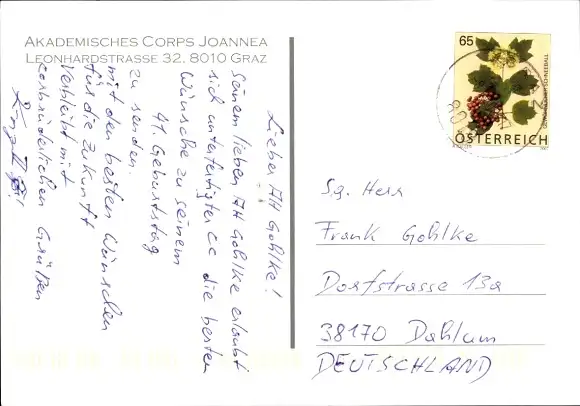 AKADEMISCHES CORPS JOANNEA
LEONHARDSTRASSE 32, 8010 GRAZ
Lieber AH Gohlke!
Seinem lieben AH Gohlke erlaubt
sich unterfertigter CC die besten
Wünsche zu seinem
41. Geburtstag
zu senden.
Mit den besten Wünschen
für die Zukunft
verbleibt mit
corpsbrüderlichen Grüßen
65
ÖSTERREICH
Sg. Herr
Frank Gohlke
Dorfstrasse 13a
38170 Dahlum
DEUTSCHLAND